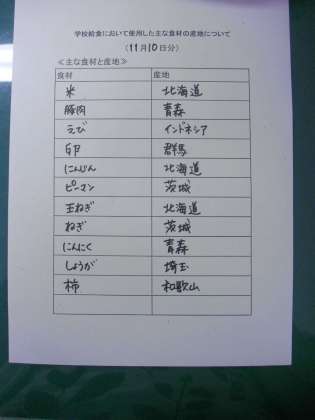 学校給食において使用した主な食材の産地について
(11月10日分)
≪主な食材と産地≫
食材 産地
米 北海道
豚肉 青森
えび インドネシア
卵 群馬
にんじん 北海道
ピーマン 茨城
玉ねぎ 北海道
ねぎ 茨城
にんにく 青森
しょうが 埼玉
柿 和歌山